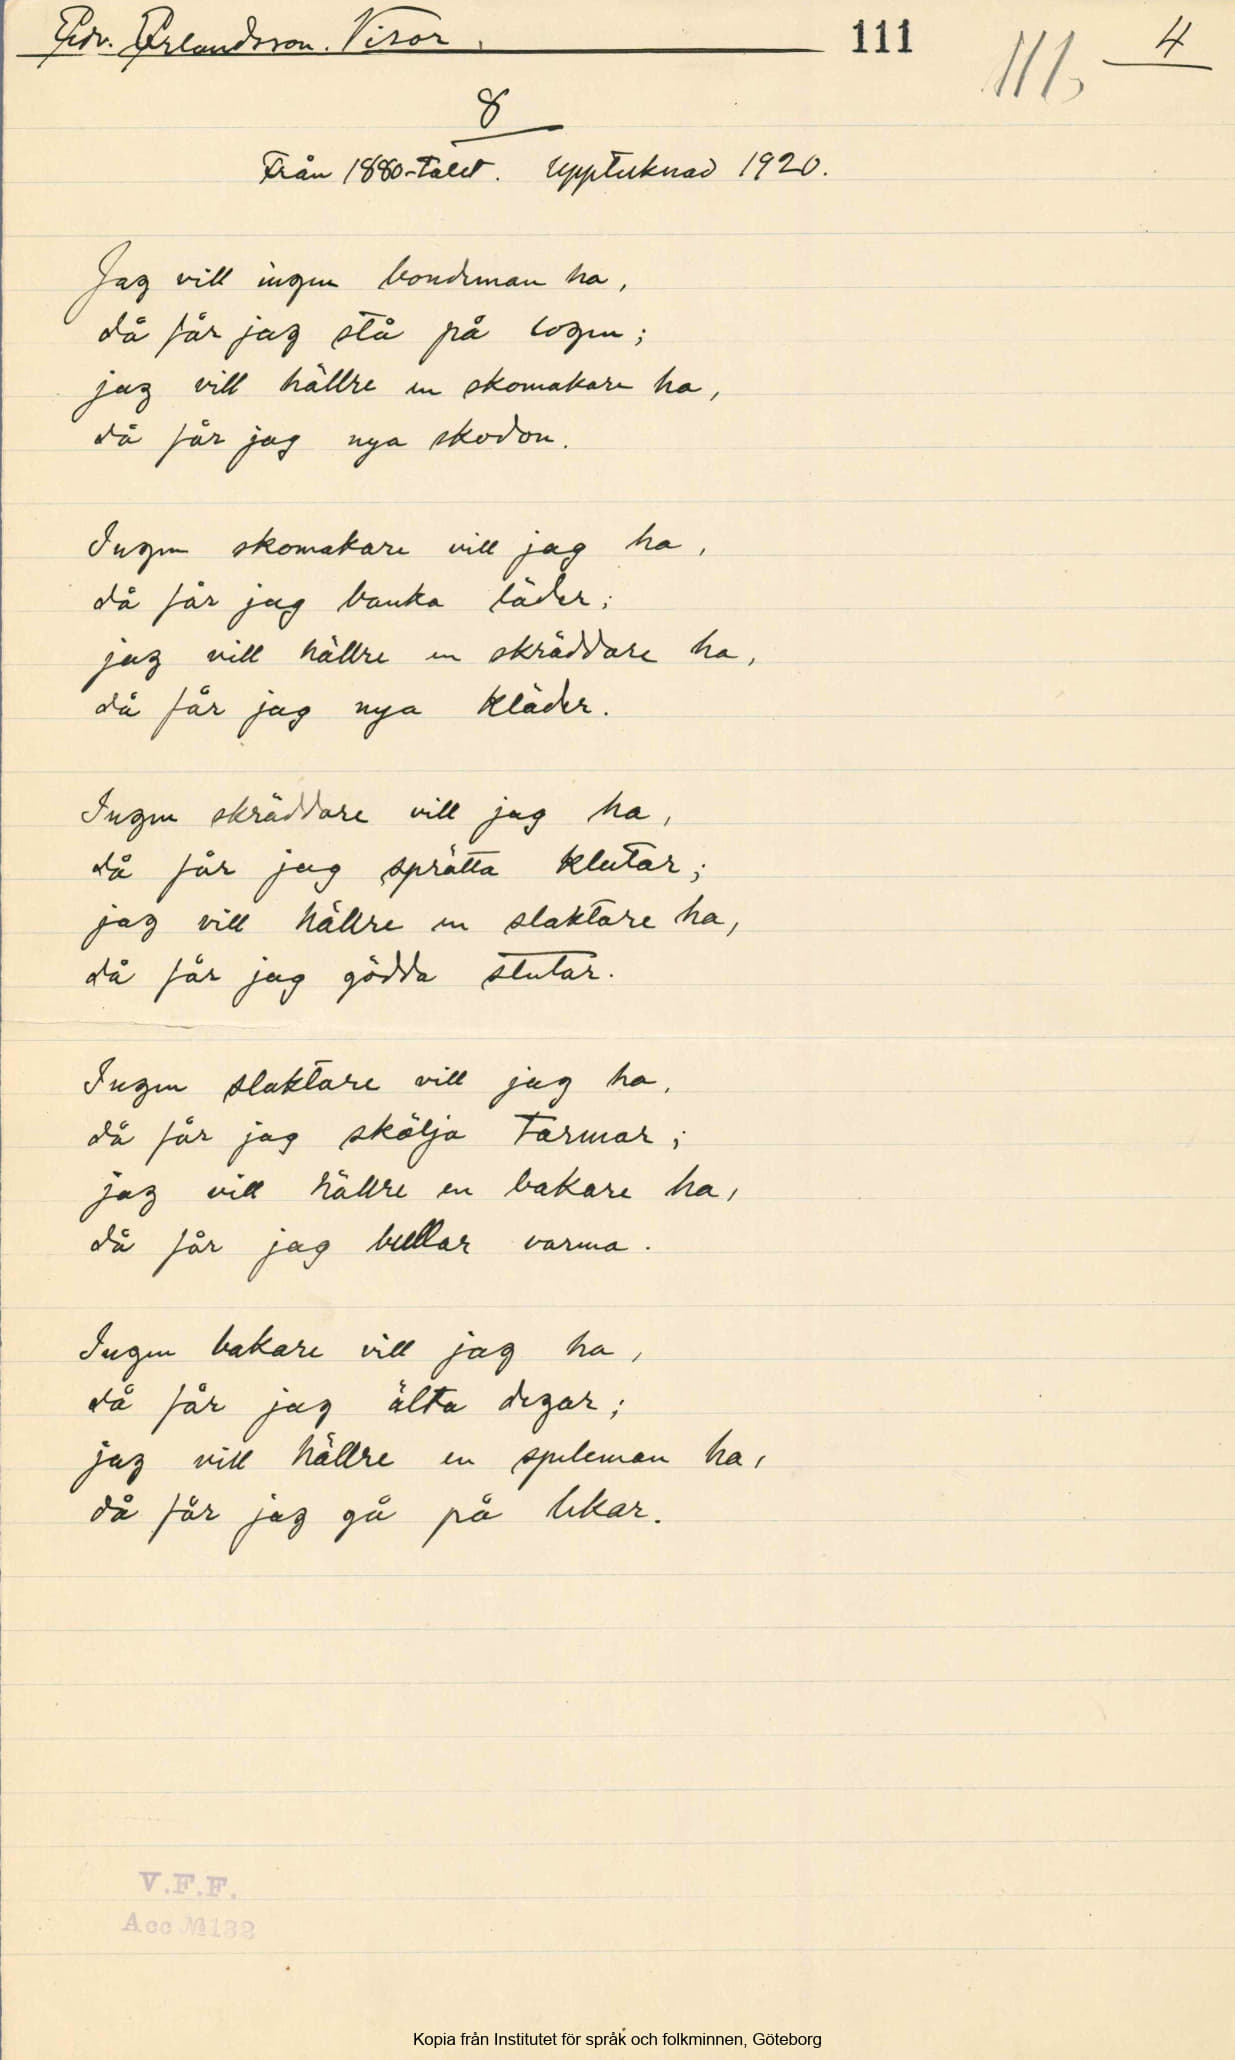 Edv. Erlandsson. Visor. 111 111, 4
8
Från 1880-talet. Upptecknad 1920.
Jag vill ingen bondeman ha,
då får jag stå på logen;
jag vill hällre en skomakare ha,
då får jag nya skodon.
Ingen skomakare vill jag ha,
då får jag banka läder;
jag vill hällre en skräddare ha,
då får jag nya kläder.
Ingen skräddare vill jag ha,
då får jag sprätta klutar;
jag vill hällre en slaktare ha,
då får jag gödda stutar.
Ingen slaktare vill jag ha,
då får jag skölja tarmar;
jag vill hällre en bakare ha,
då får jag bullar varma.
Ingen bakare vill jag ha,
då får jag älta degar;
jag vill hällre en speleman ha,
då får jag gå på lekar.
V.F.F.
Acc №132
Kopia från Institutet för språk och folkminnen, Göteborg